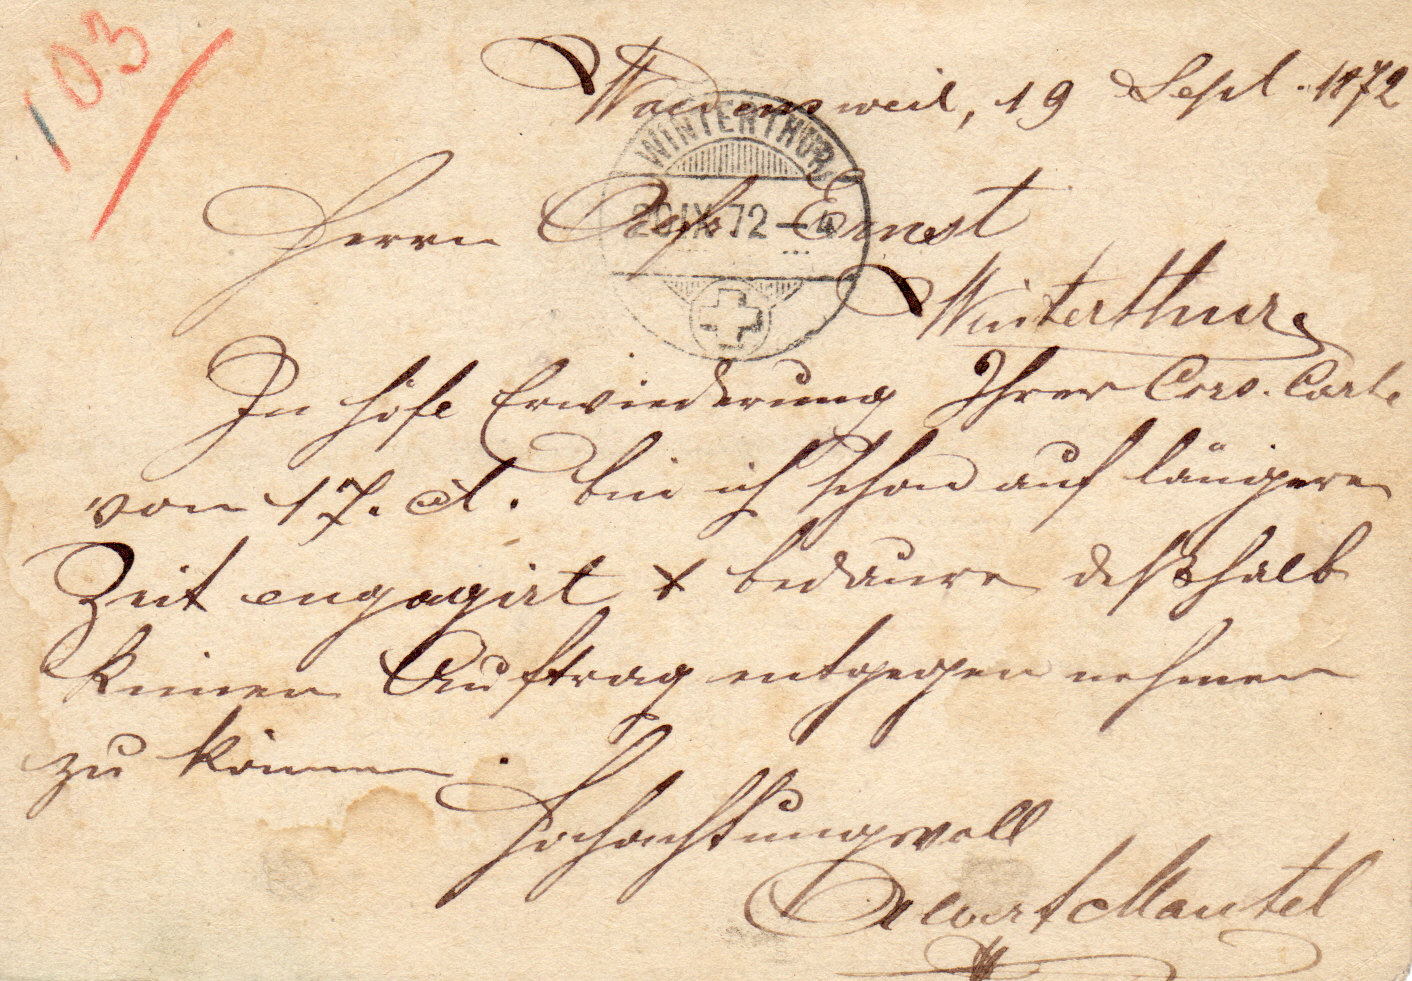 103
Waedensweil, 19 Sept. 1872
WINTERTHUR
20 IX 72 – 4
Herrn Ernst
Winterthur
In höfl Erwiederung Ihrer Corr. Carte
vom 17. ct. bin ich schon auf längere
Zeit engagirt & bedaure deßhalb
keinen Auftrag entgegen nehmen
zu können.
Hochachtungsvoll
Albert Mantel